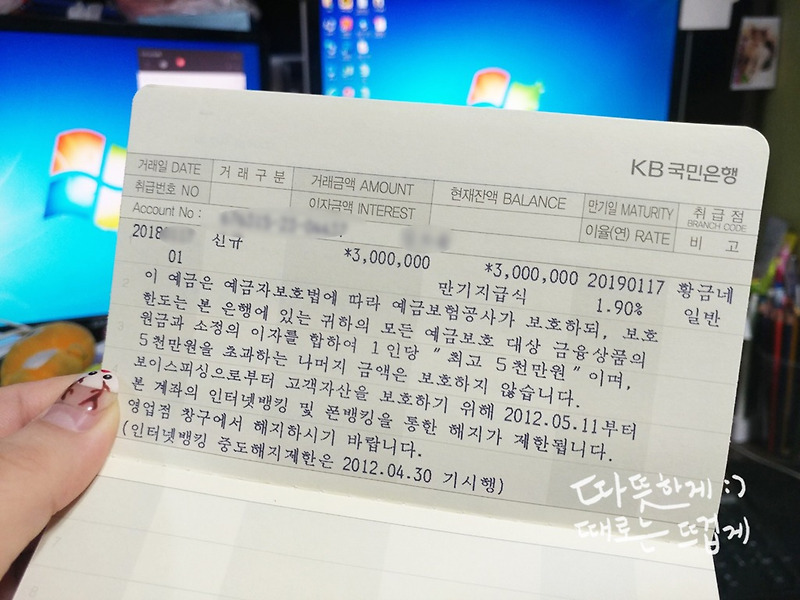 KB국민은행
거래일 DATE 거래구분 거래금액 AMOUNT 현재잔액 BALANCE 만기일 MATURITY 취급점
취급번호 NO 이자금액 INTEREST 이율(연) RATE BRANCH CODE
비고
Account No :
2018 신규 *3,000,000 *3,000,000 20190117 황금네
01 만기지급식 1.90% 일반
이 예금은 예금자보호법에 따라 예금보험공사가 보호하되, 보호
한도는 본 은행에 있는 귀하의 모든 예금보호 대상 금융상품의
원금과 소정의 이자를 합하여 1인당 "최고 5천만원"이며,
5천만원을 초과하는 나머지 금액은 보호하지 않습니다.
보이스피싱으로부터 고객자산을 보호하기 위해 2012.05.11부터
본 계좌의 인터넷뱅킹 및 폰뱅킹을 통한 해지가 제한됩니다.
영업점 창구에서 해지하시기 바랍니다.
(인터넷뱅킹 중도해지제한은 2012.04.30 기시행)
따뜻하게:)
때로는 뜨겁게